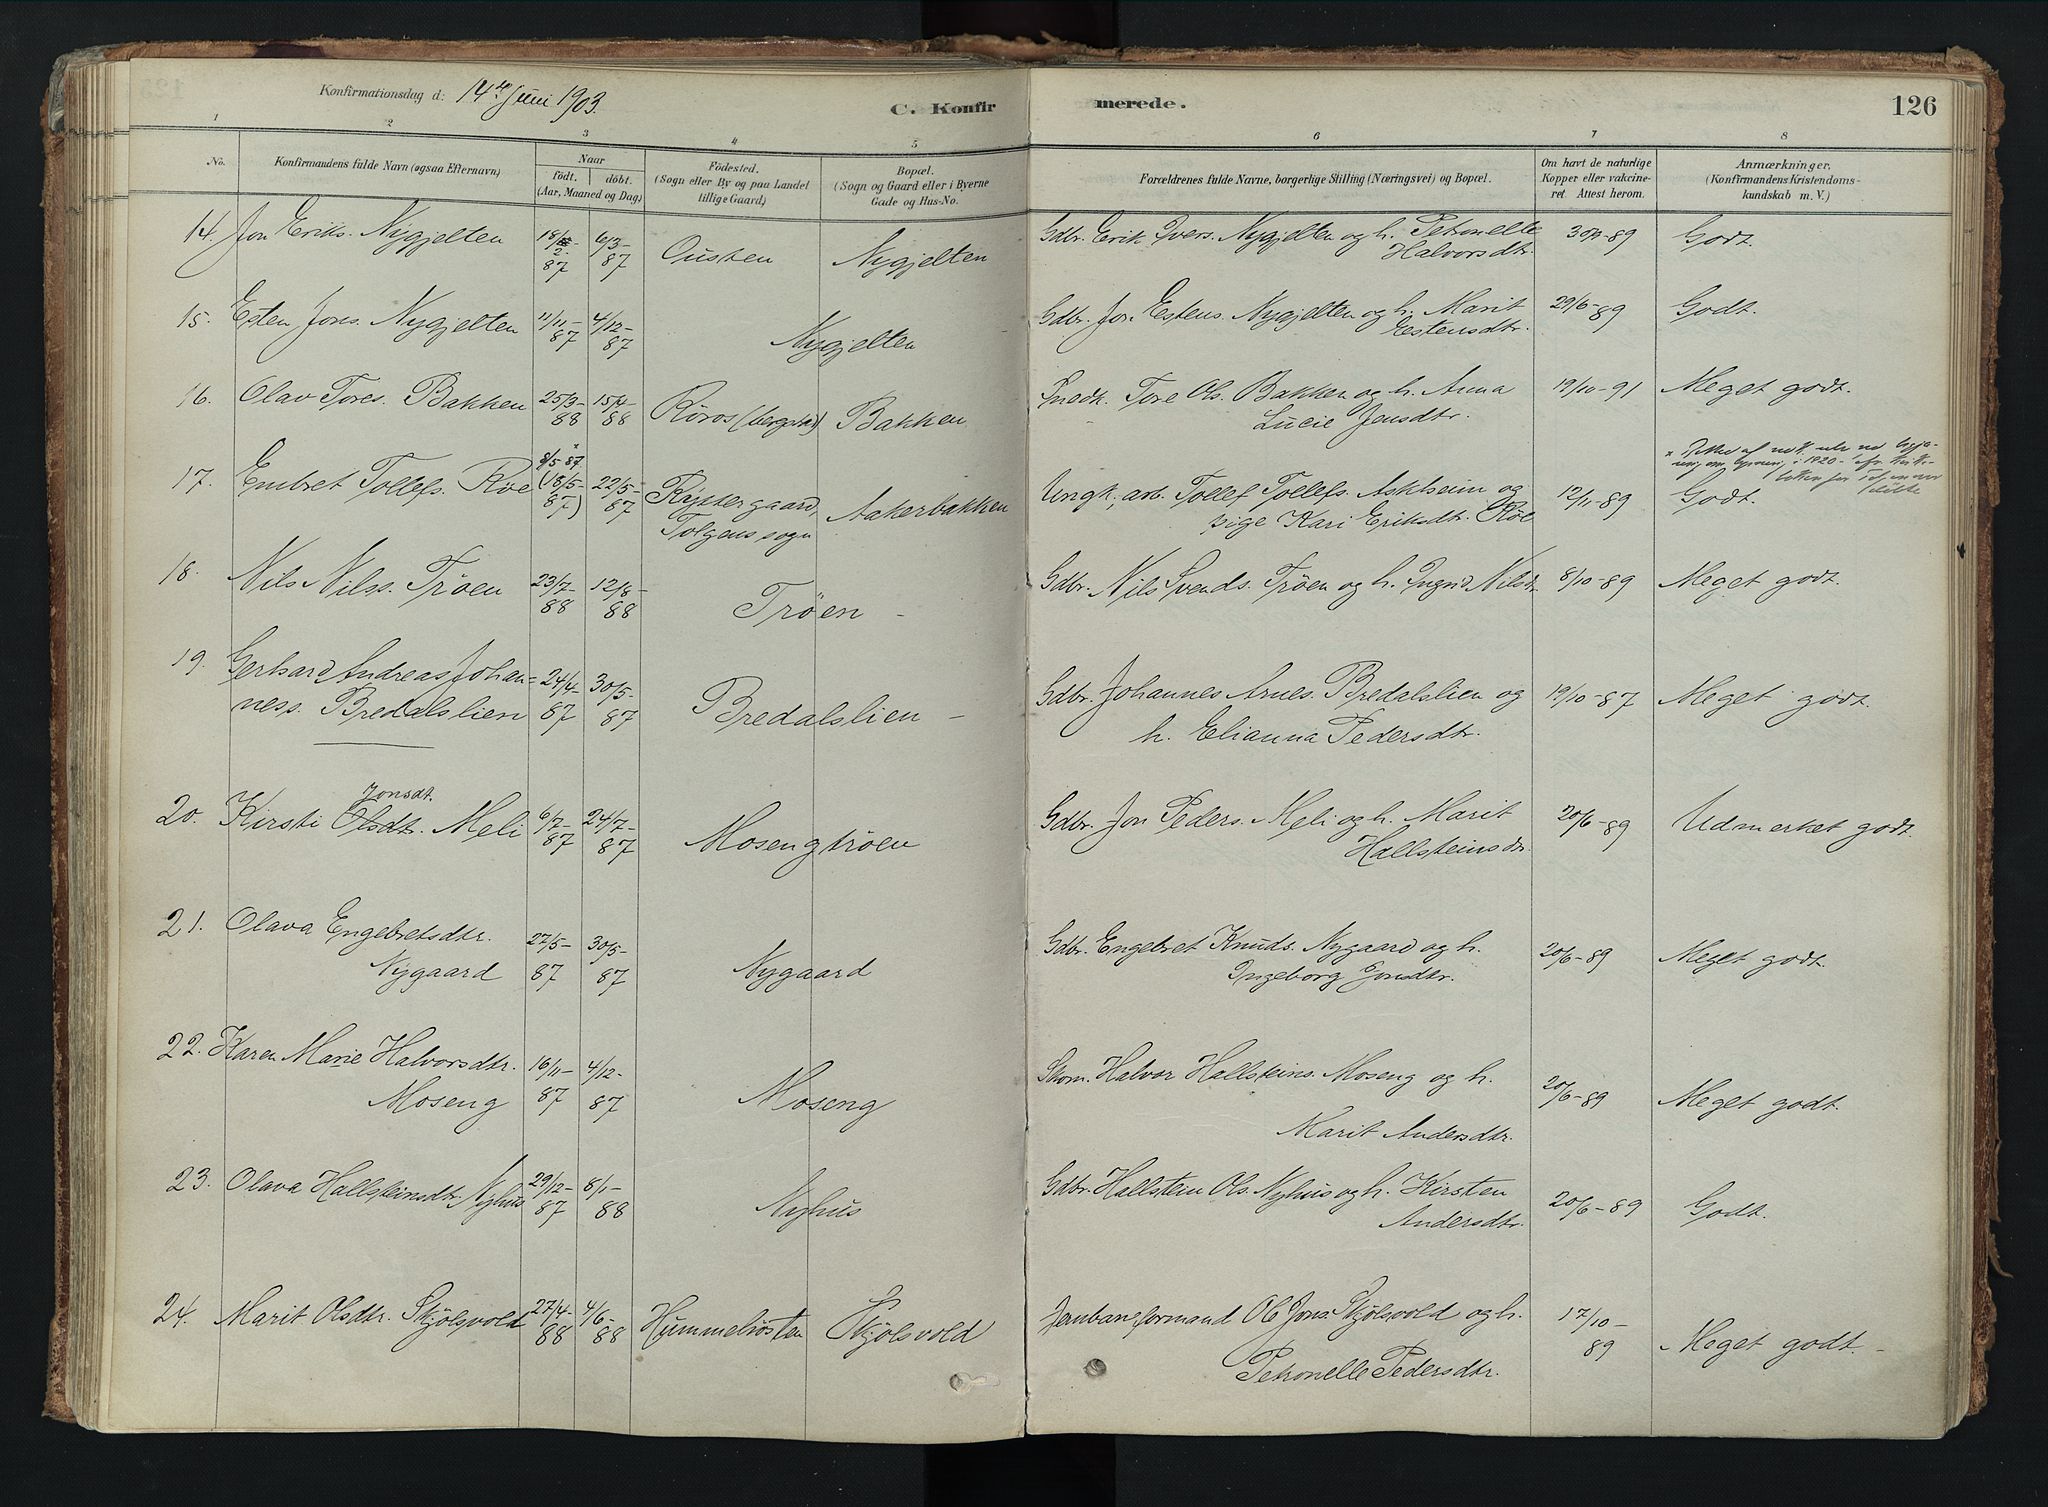 Konfirmationsdag d: 14de Juni 1903.
C. Konfir merede. 126
1 2 3 4 5 6 7 8
No. Konfirmandens fulde Navn (ogsaa Efternavn) Naar födt. döbt. (Aar, Maaned og Dag) Födested. (Sogn eller By og paa Landet tillige Gaard) Bopæl. (Sogn og Gaard eller i Byerne Gade og Hus-No. Forældrenes fulde Navne, borgerlige Stilling (Næringsvei) og Bopæl. Om havt de naturlige Kopper eller vakcineret. Attest herom. Anmærkninger. (Konfirmandens Kristendomskundskab m. V.)
14. Jon Eriks. Nygjelten 18/2-87 6/3-87 Ousten Nygjelten Gdbr. Erik Ivers. Nygjelten og h. Petronelle Halvorsdtr. -89 Godt.
15. Esten Jons. Nygjelten 11/11-87 4/12-87 Nygjelten Gdbr. Jon Estens. Nygjelten og h. Marit Estensdtr. 29/6-89 Godt.
16. Olav Tores. Bakken 25/3-88 88 Röros (bergstad) Bakken Snedk. Tore Ols. Bakken og h. Anna Lucie Jensdtr. 19/10-91 Meget godt.
17. Embret Tollefs. Röe 8/5 87 * (18/5-87) 22/5-87 Ryttergaard, Tolgens sogn Aakerbakken Ungk., arb. Tollef Tollefs. Askheim og pige Kari Eriksdtr. Röe 12/11-89 Godt.
18. Nils Nilss. Tröen 23/7-88 12/8-88 Tröen - Gdbr. Nils Svends. Tröen og h. Ingrid Nilsdtr 8/10-89 Meget godt.
19. Gerhard Andreas Johan=
ness. Bredalslien 24/4-87 30/5-87 Bredalslien - Gdbr. Johannes Arnes. Bredalslien og h. Elianna Pedersdtr. 19/10-87 Meget godt.
20. Kirsti Olsdtr. Jonsdt. Meli 6/7-87 24/7-87 Mosengtröen Gdbr. Jon Peders. Meli og h. Marit Hallsteinsdtr. 20/6-89 Udmerket godt.
21. Olava Engebretsdtr. Nygaard 27/5-87 30/5-87 Nygaard Gdbr. Engebret Knuds. Nygaard og h. Ingeborg Jonsdtr. 20/6-89 Meget godt.
22. Karen Marie Halvorsdtr. Moseng 16/11-87 4/12-87 Moseng Skom. Halvor Hallsteins. Moseng og h. Marit Andersdtr. 20/6-89 Meget godt.
23. Olava Hallsteinsdtr. Nyhus 29/12-87 8/1-88 Nyhus Gdbr. Hallstein Ols. Nyhus og h. Kirsten Andersdtr. 20/6-89 Godt.
24. Marit Olsdtr. Skjölsvold 27/4-88 4/6-88 Hummelvösten Skjölsvold Jernbaneformand Ol. Jons. Skjölsvold og h. Petronelle Pedersdtr. 17/10-89 Meget godt. -